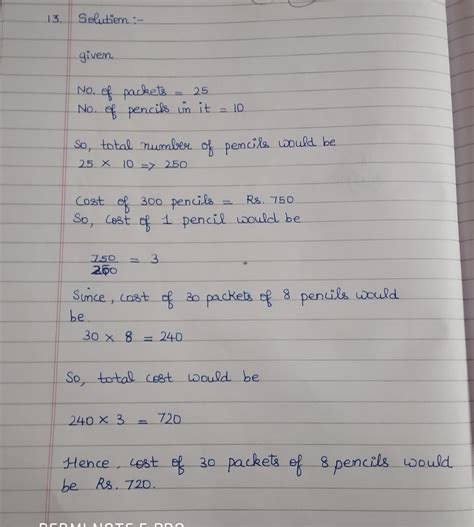 13. Solution :-
given
No. of packets = 25
No. of pencils in it = 10
So, total number of pencils would be
25 × 10 => 250
Cost of 300 pencils = Rs. 750
So, cost of 1 pencil would be
750
250 = 3
Since, cost of 30 packets of 8 pencils would
be
30 × 8 = 240
So, total cost would be
240 × 3 = 720
Hence, cost of 30 packets of 8 pencils would
be Rs. 720.